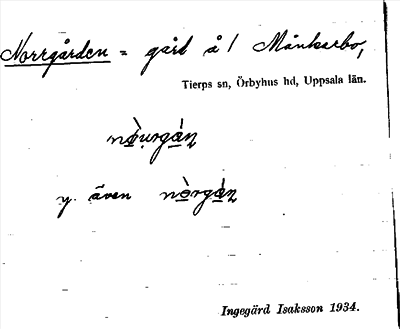 Norrgården = gård å / Månkarbo,
Tierps sn, Örbyhus hd, Uppsala län.
nòųrgán̥
y. även nòrgán̥
Ingegärd Isaksson 1934.